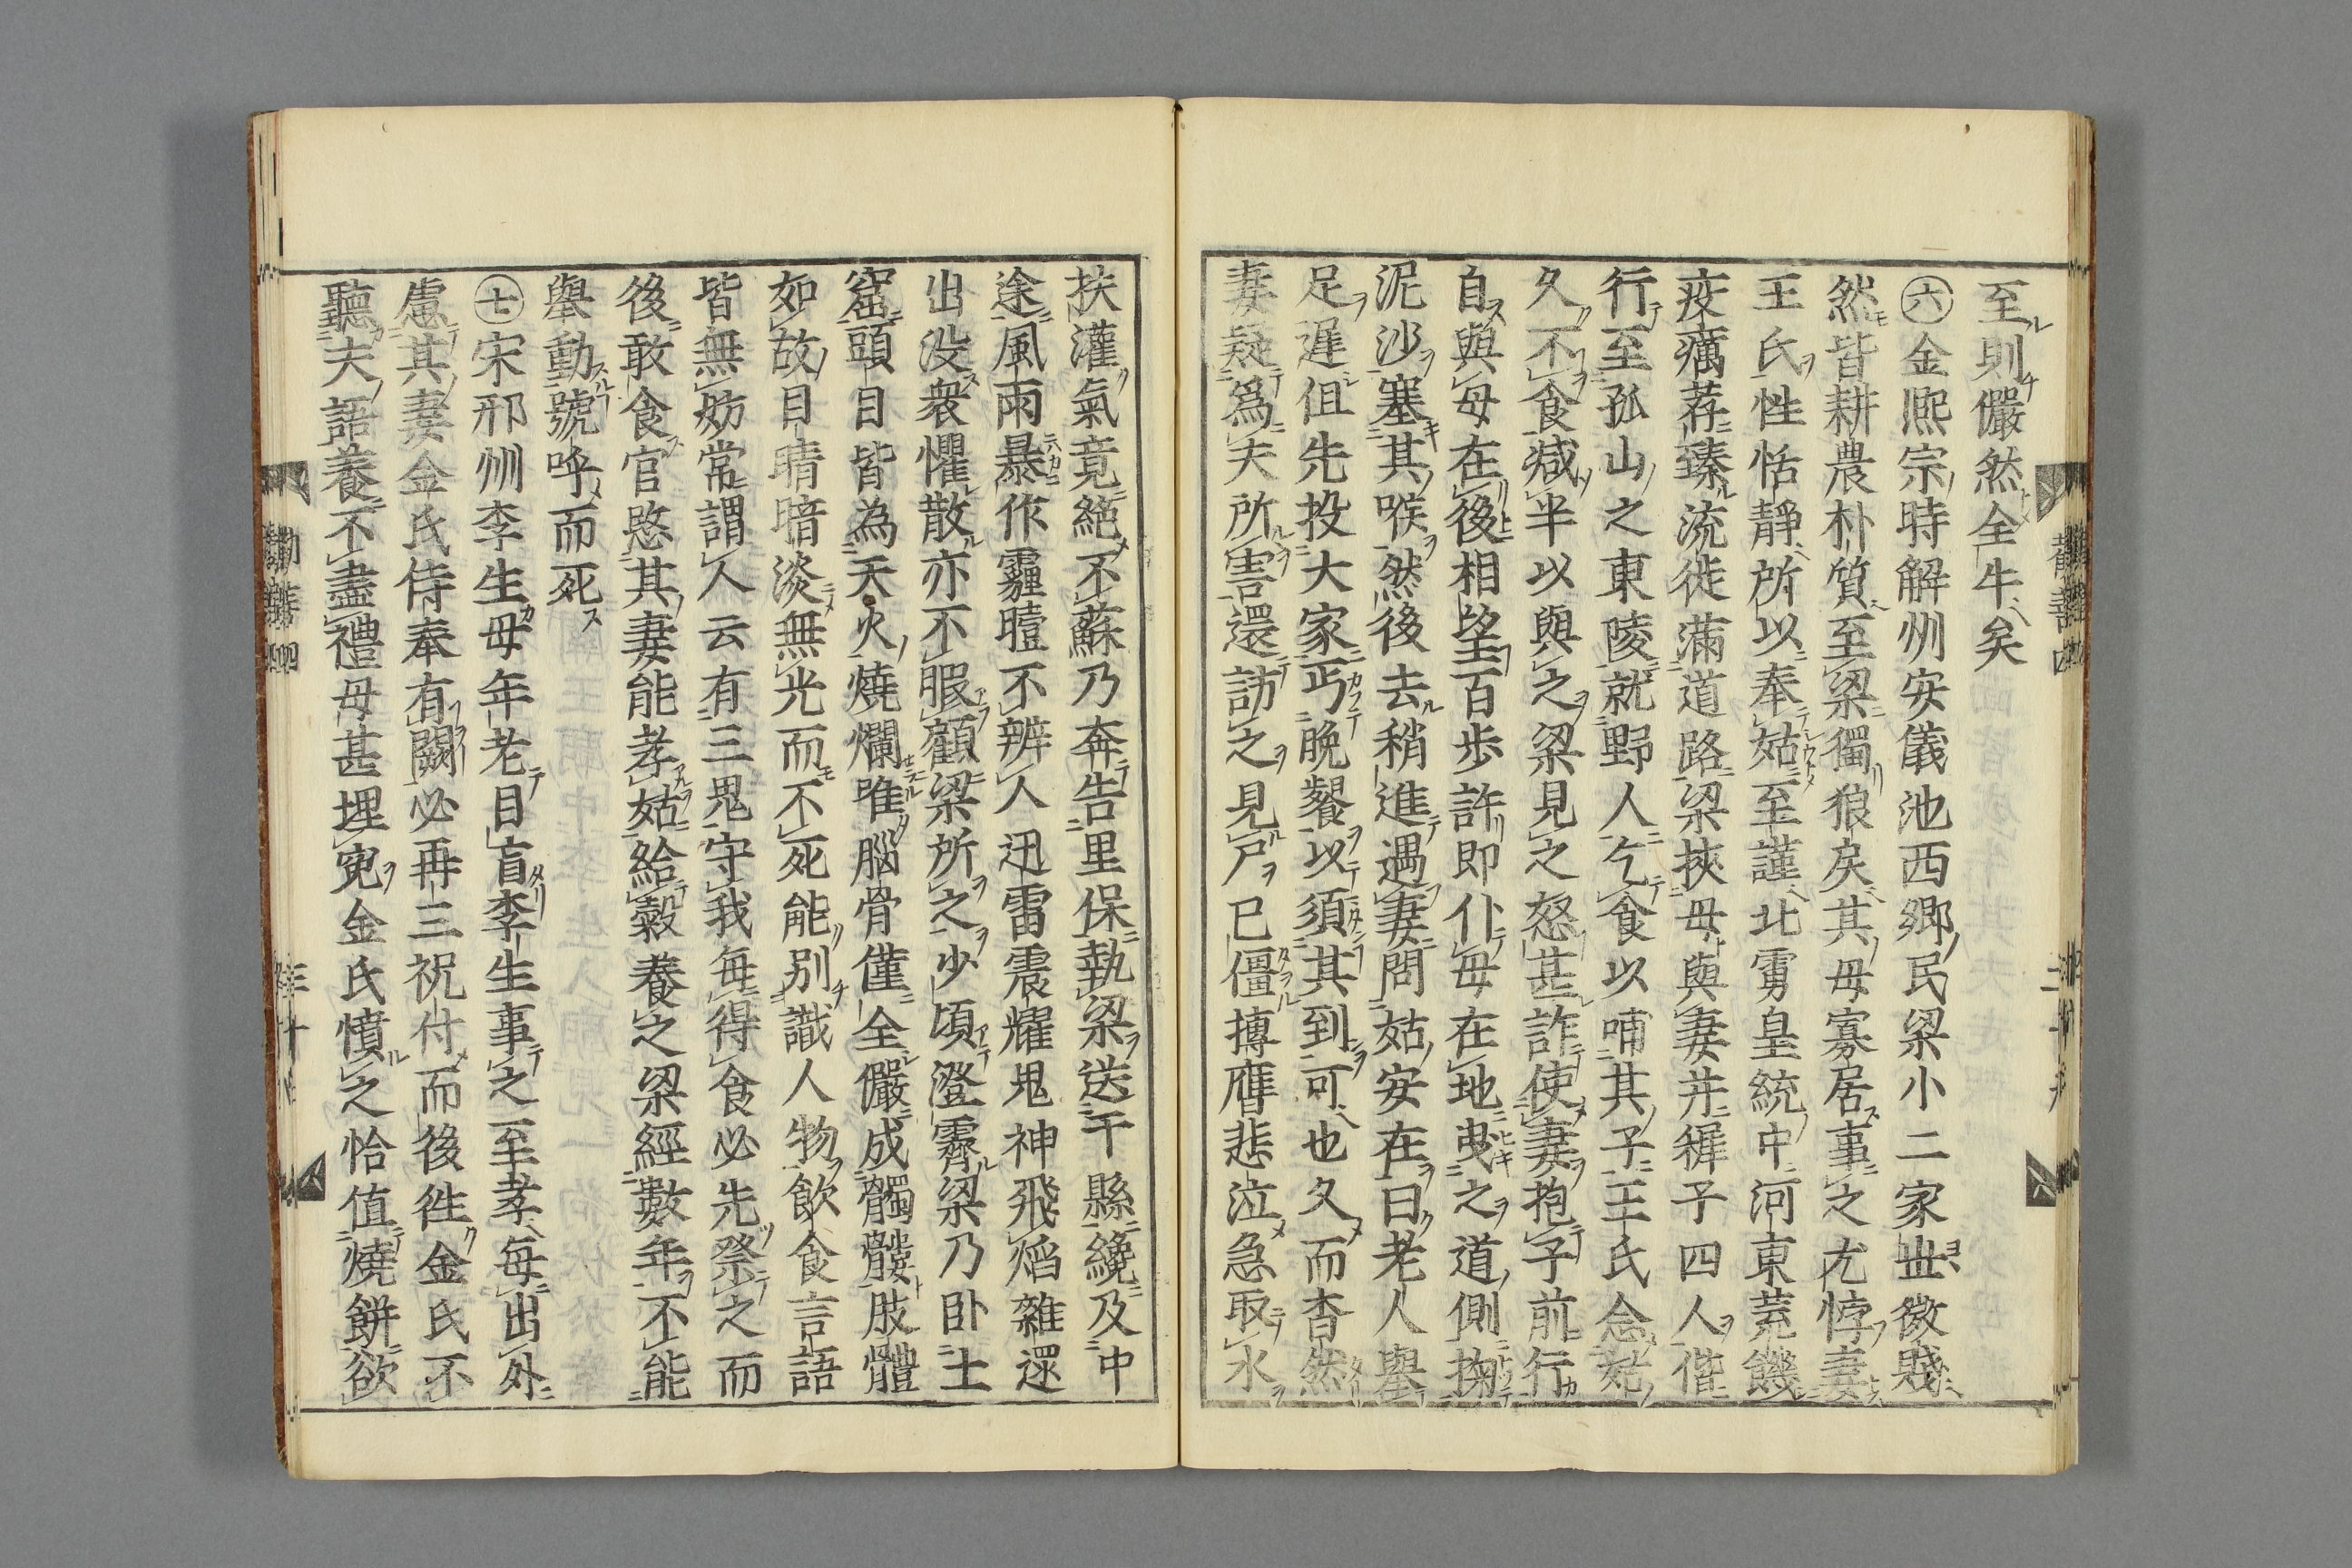 至則儼然全牛矣
㊅金熙宗時解州安儀池西鄉民梁小二家世微賤
然皆耕農朴質至梁獨狼戾其母寡居事之尤悖妻
王氏性恬靜所以奉姑至謹北虜皇統中河東荒饑
疫癘荐臻流徙滿道路梁挾母與妻并稺子四人偕
行至孤山之東陵就野人乞食以哺其子王氏念姑
久不食減半以與之梁見之怒甚詐使妻抱子前行
自與母在後相望百步許即仆母在地曳之道側掬
泥沙塞其喉然後去稍進遇妻問姑安在曰老人舉
足遲但先投大家丐晚餐以須其到可也久而杳然
妻疑為夫所害還訪之見尸已僵摶膺悲泣急取水
扶灌氣竟絕不蘇乃奔告里保執梁送于縣纔及中
途風雨暴作霾曀不辨人迅雷震耀鬼神飛焰雜還
出没衆懼散亦不暇顧梁所之少頃澄霽梁乃卧土
窟頭目皆為天火燒爛唯腦骨僅全儼成髑髏肢體
如故目睛暗淡無光而不死能別識人物飲食言語
皆無妨常謂人云有三鬼守我每得食必先祭之而
後敢食官愍其妻能孝姑給穀養之梁經數年不能
舉動號呼而死
㊆宋邢州李生母年老目盲李生事之至孝每出外
慮其妻金氏侍奉有闕必再三祝付而後徃金氏不
聽夫語養不盡禮母甚埋寃金氏憤之恰值燒餅欲
勸善四
三十